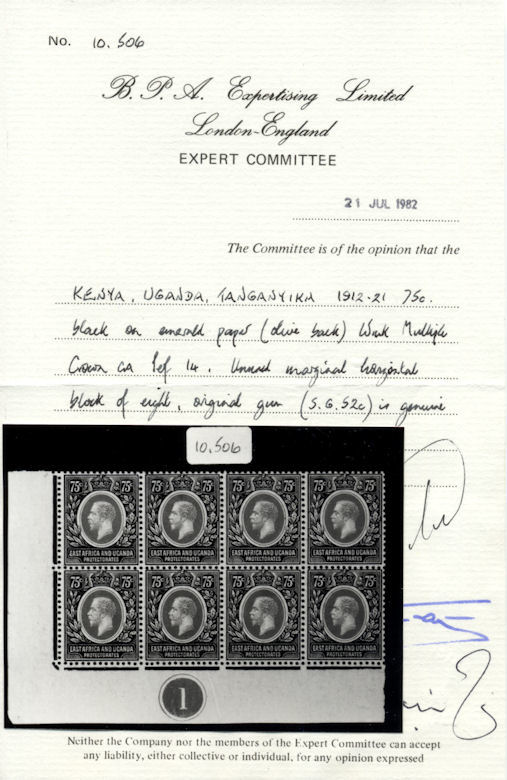 No. 10.506
B. P. A. Expertising Limited
London-England
EXPERT COMMITTEE
21 JUL 1982
The Committee is of the opinion that the
KENYA, UGANDA, TANGANYIKA 1912-21 75c.
black on emerald paper (olive back) Wmk Multiple
Crown CA Perf 14. Unused marginal horizontal
block of eight, original gum (S.G. 52c) is genuine
10.506
75c 75c 75c 75c 75c 75c 75c 75c
EAST AFRICA AND UGANDA EAST AFRICA AND UGANDA EAST AFRICA AND UGANDA EAST AFRICA AND UGANDA
PROTECTORATES PROTECTORATES PROTECTORATES PROTECTORATES
75c 75c 75c 75c 75c 75c 75c 75c
EAST AFRICA AND UGANDA EAST AFRICA AND UGANDA EAST AFRICA AND UGANDA EAST AFRICA AND UGANDA
PROTECTORATES PROTECTORATES PROTECTORATES PROTECTORATES
1
Neither the Company nor the members of the Expert Committee can accept
any liability, either collective or individual, for any opinion expressed